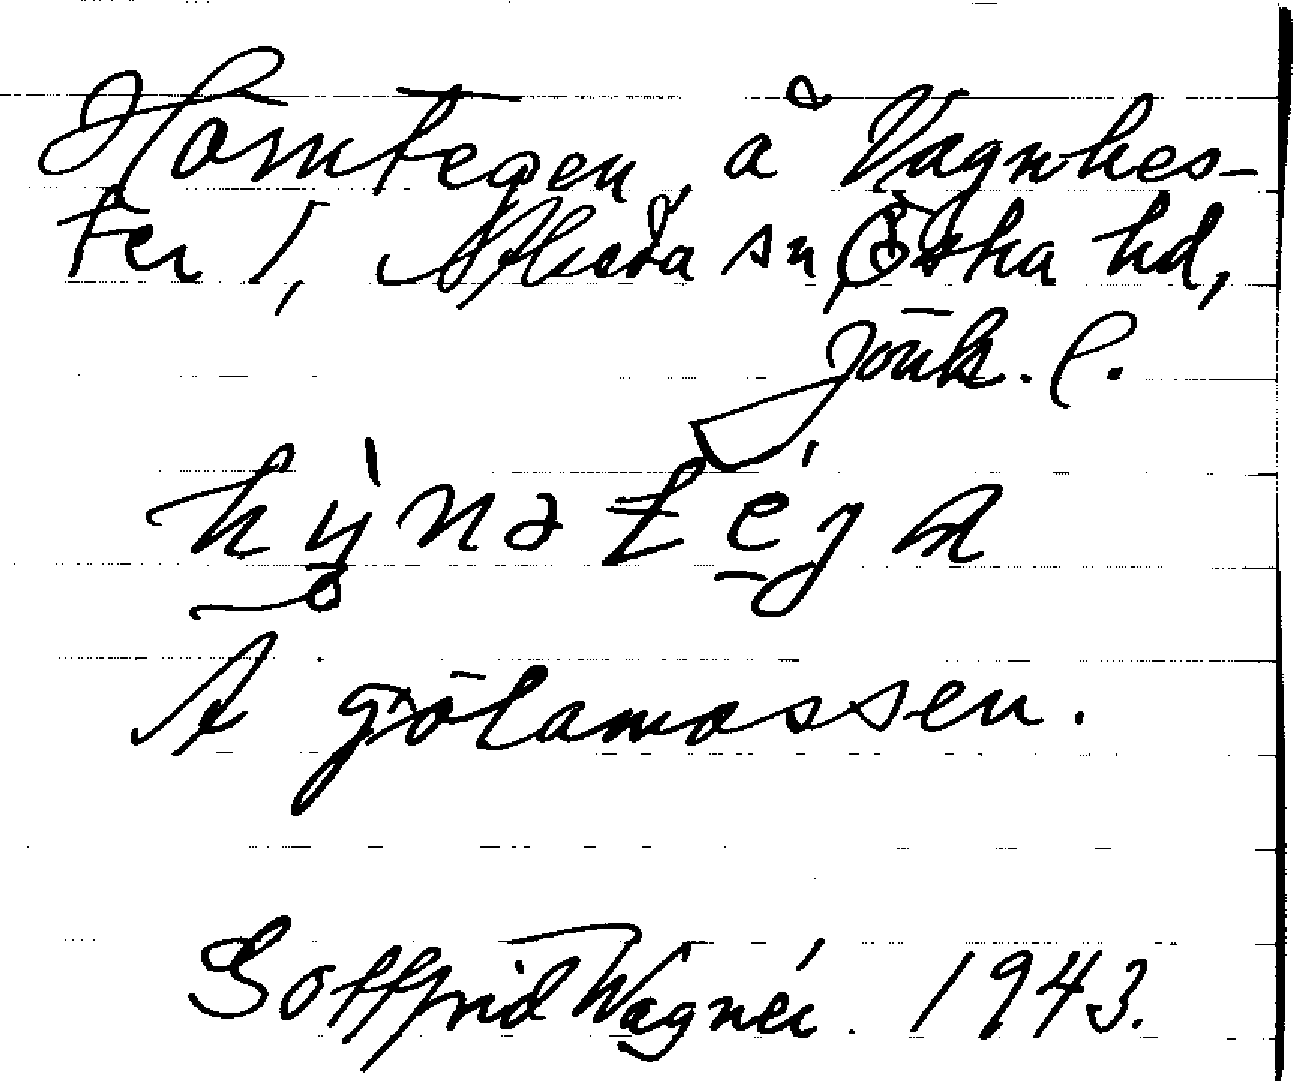 Hörntegen, å Vagnhes-
ter 1, Alseda sn Östra hd,
Jönk. l.
Å gölamossen.
Gottfrid Wagnér. 1943.